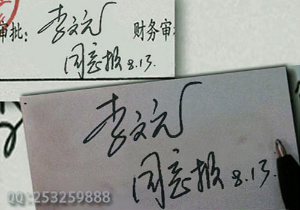 审批: 李文元 财务审
同意报 8.13
李文元
同意报 8.13.
QQ:253259888